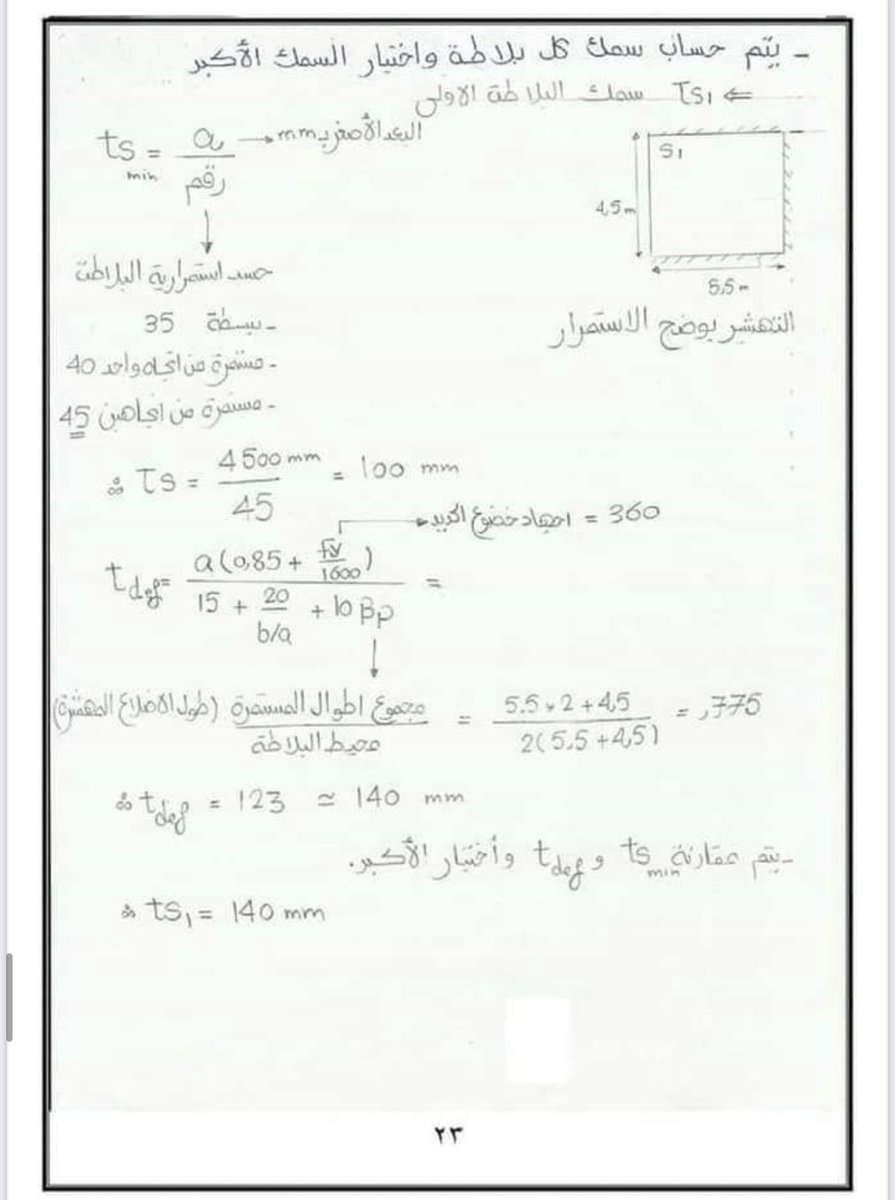 - يتم حساب سمك كل بلاطة واختيار السمك الأكبر
⇐ TS1 سمك البلاطة الاولى
ts min = a / رقم → البعد الأصغر بـ mm
S1
4,5 m
5,5 m
التهشير يوضح الاستمرار
حسب استمرارية البلاطة
- بسيطة 35
- مستمرة من اتجاه واحد 40
- مستمرة من اتجاهين 45
∴ TS = 4500 mm / 45 = 100 mm
اجهاد خضوع الحديد = 360
t def = a (0,85 + fy/1600) / 15 + 20/b/a + 10 βp =
مجموع اطوال المستمرة (طول الاضلاع المهشرة) / محيط البلاطة = 5.5 * 2 + 4,5 / 2(5,5 + 4,5) = ,775
∴ t def = 123 ≃ 140 mm
- يتم مقارنة ts min و t def وأختيار الأكبر.
∴ ts1 = 140 mm
٢٣